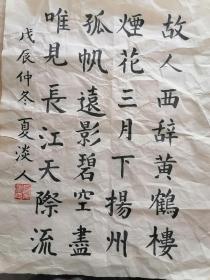 故人西辞黄鶴樓
煙花三月下揚州
孤帆遠影碧空盡
唯見長江天際流
戊辰仲冬夏淡人